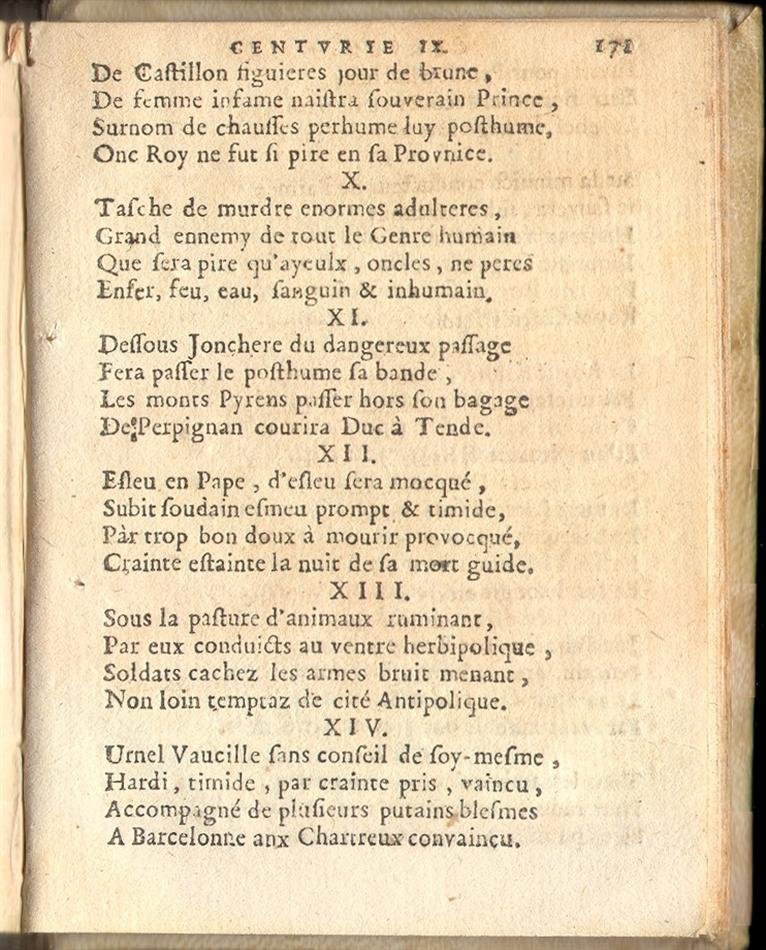 CENTVRIE IX. 171
De Caſtillon figuieres jour de brune,
De femme infame naiſtra ſouverain Prince,
Surnom de chauſſes perhume luy poſthume,
Onc Roy ne fut ſi pire en ſa Provnice.
X.
Taſche de murdre enormes adulteres,
Grand ennemy de tout le Genre humain
Que ſera pire qu'ayeulx, oncles, ne peres
Enfer, feu, eau, ſanguin & inhumain.
XI.
Deſſous Jonchere du dangereux paſſage
Fera paſſer le poſthume ſa bande,
Les monts Pyrens paſſer hors ſon bagage
De Perpignan courira Duc à Tende.
XII.
Eſleu en Pape, d'eſleu ſera mocqué,
Subit ſoudain eſmeu prompt & timide,
Par trop bon doux à mourir provocqué,
Crainte eſtainte la nuit de ſa mort guide.
XIII.
Sous la paſture d'animaux ruminant,
Par eux conduicts au ventre herbipolique,
Soldats cachez les armes bruit menant,
Non loin temptaz de cité Antipolique.
XIV.
Urnel Vaucille ſans conſeil de ſoy-meſme,
Hardi, timide, par crainte pris, vaincu,
Accompagné de pluſieurs putains bleſmes
A Barcelonne anx Chartreux convaincu.